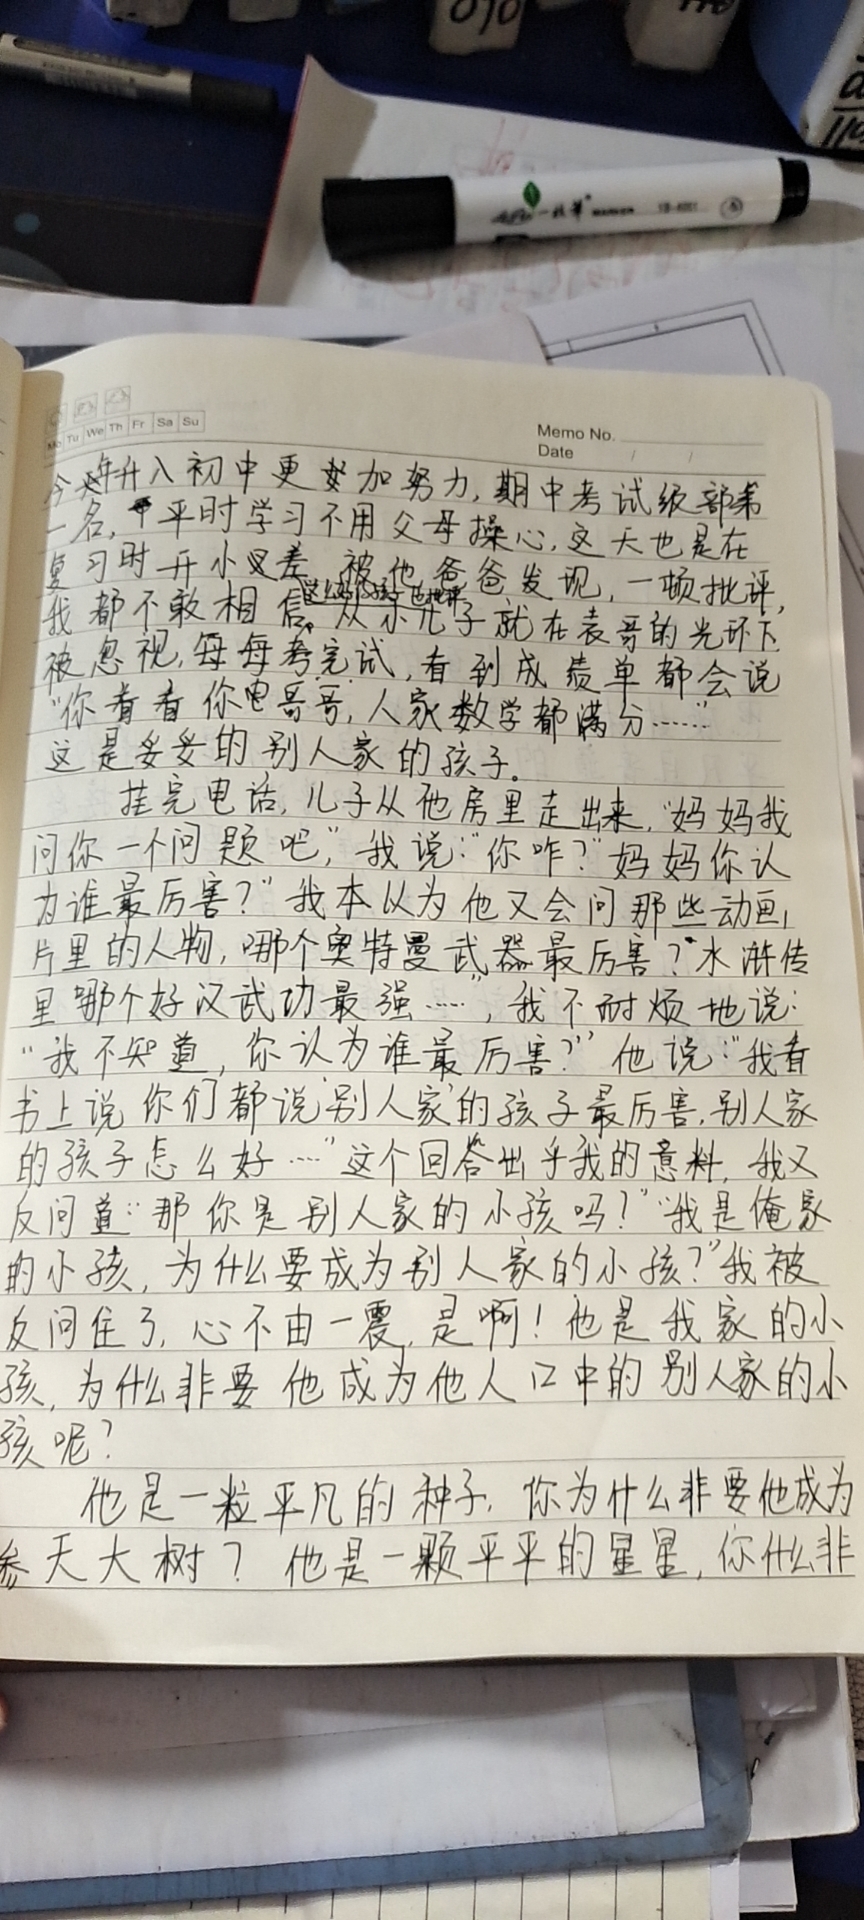 090
Mo Tu We Th Fr Sa Su
Memo No.
Date / /
MARKER
今年升入初中更加努力,期中考试级部第
一名,平时学习不用父母操心,这天也是在
复习时开小差,被他爸爸发现,一顿批评,
我都不敢相信。从小儿子就在表哥的光环下
被忽视,每每考完试,看到成绩单都会说
“你看看你哥哥,人家数学都满分……”
这是妥妥的别人家的孩子。
挂完电话,儿子从他房里走出来,“妈妈我
问你一个问题吧,”我说:“你咋?”妈妈你认
为谁最厉害?”我本以为他又会问那些动画
片里的人物,哪个奥特曼武器最厉害?水浒传
里哪个好汉武功最强……”,我不耐烦地说:
“我不知道,你认为谁最厉害?”他说:“我看
书上说你们都说‘别人家’的孩子最厉害,别人家
的孩子怎么好……”这个回答出乎我的意料,我又
反问道:“那你是别人家的小孩吗?”“我是俺家
的小孩,为什么要成为别人家的小孩?”我被
反问住了,心不由一震,是啊!他是我家的小
孩,为什么非要他成为他人口中的别人家的小
孩呢?
他是一粒平凡的种子,你为什么非要他成为
参天大树?他是一颗平平的星星,你什么非